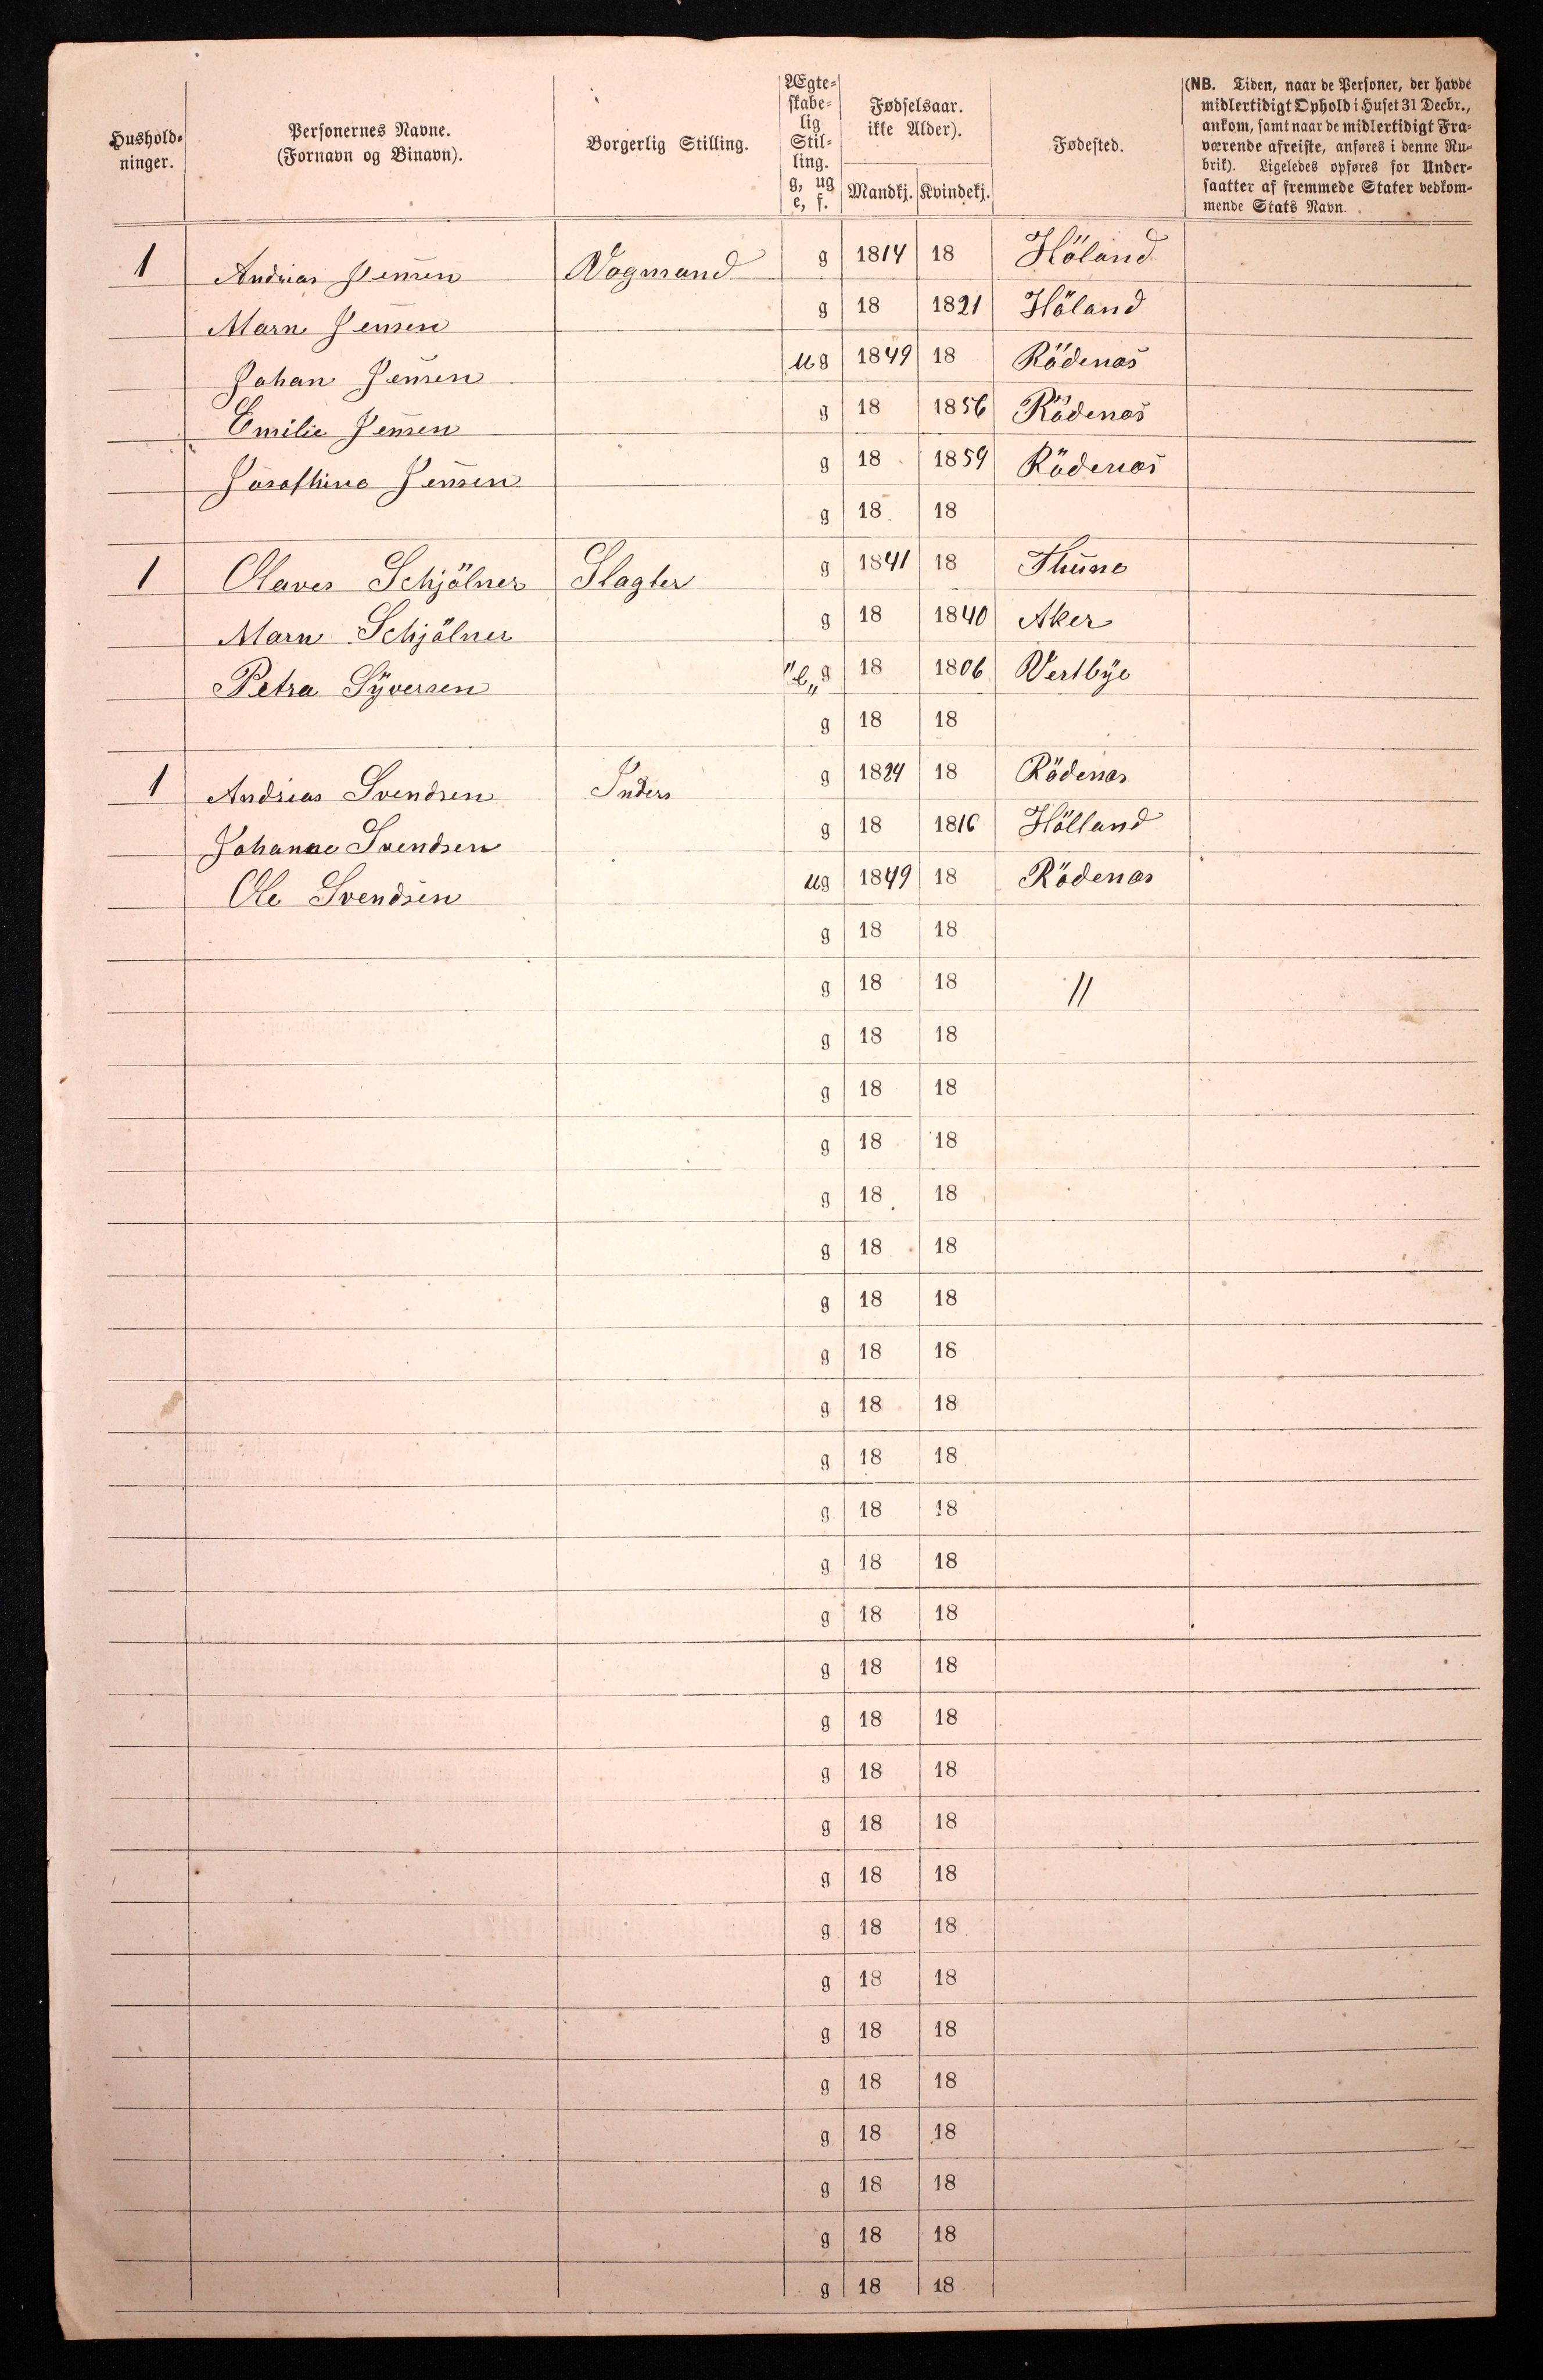 Hushold-
ninger.
Personernes Navne.
(Fornavn og Binavn).
Borgerlig Stilling.
Ægte-
skabe-
lig
Stil-
ling.
g, ug
e, f.
Fødselsaar.
ikke Alder).
Mandkj. Kvindekj.
Fødested.
(NB. Tiden, naar de Personer, der havde
midlertidigt Ophold i Huset 31 Decbr.,
ankom, samt naar de midlertidigt Fra-
værende afreiste, anføres i denne Ru-
brik). Ligeledes opføres for Under-
saatter af fremmede Stater vedkom-
mende Stats Navn.
1 Andrias Jensen Vogmand g 1814 18 Höland
Marn Jensen g 18 1821 Höland
Johan Jensen ug 1849 18 Rödenas
Emilie Jensen g 18 1856 Rödenas
Josefhine Jensen g 18 1859 Rödenas
g 18 18
1 Olaves Schjölner Slagter g 1841 18 Thune
Marn Schjölner g 18 1840 Aker
Petra Syversen "e„ g 18 1806 Vestbye
g 18 18
1 Andrias Svendsen Inders g 1824 18 Rödenas
Johanne Svendsen g 18 1816 Hölland
Ole Svendsen ug 1849 18 Rödenas
g 18 18
g 18 18 //
g 18 18
g 18 18
g 18 18
g 18 18
g 18 18
g 18 18
g 18 18
g 18 18
g 18 18
g 18 18
g 18 18
g 18 18
g 18 18
g 18 18
g 18 18
g 18 18
g 18 18
g 18 18
g 18 18
g 18 18
g 18 18
g 18 18
g 18 18
g 18 18
g 18 18